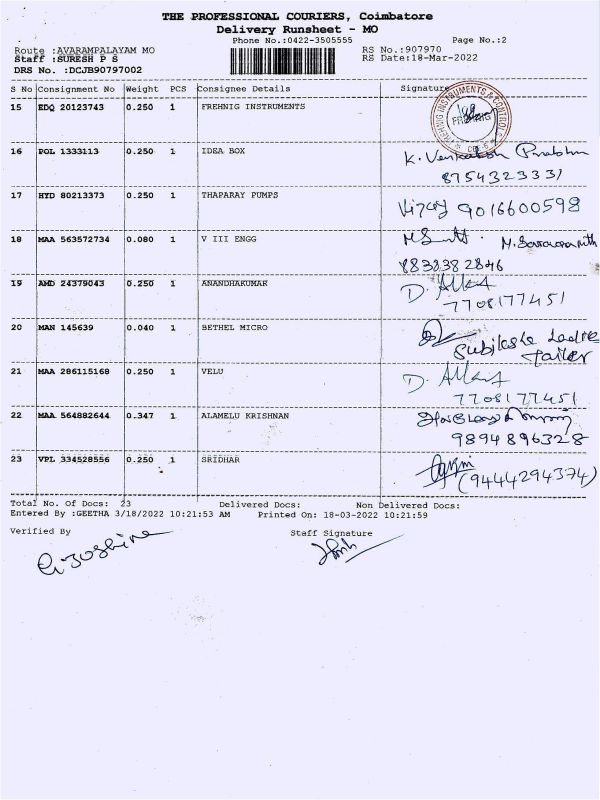 THE PROFESSIONAL COURIERS, Coimbatore
Delivery Runsheet - MO
Phone No.:0422-3505555 Page No.:2
Route :AVARAMPALAYAM MO RS No.:907970
Staff :SURESH P S RS Date:18-Mar-2022
DRS No. :DCJB90797002
S No Consignment No Weight PCS Consignee Details Signature
15 EDQ 20123743 0.250 1 FREHNIG INSTRUMENTS
FREHNIG INSTRUMENTS & CONTROLS
FREHNIG
16 POL 1333113 0.250 1 IDEA BOX K. Venkatesh Prabhu
8754323331
17 HYD 80213373 0.250 1 THAPARAY PUMPS Vijay 9016600598
18 MAA 563572734 0.080 1 V III ENGG
8838382846
19 AMD 24379043 0.250 1 ANANDHAKUMAR D.
7708177451
20 MAN 145639 0.040 1 BETHEL MICRO
Tailer
21 MAA 286115168 0.250 1 VELU D.
7708177451
22 MAA 564882644 0.347 1 ALAMELU KRISHNAN
9894896328
23 VPL 334528556 0.250 1 SRIDHAR
(9444294374)
Total No. Of Docs: 23 Delivered Docs: Non Delivered Docs:
Entered By :GEETHA 3/18/2022 10:21:53 AM Printed On: 18-03-2022 10:21:59
Verified By Staff Signature